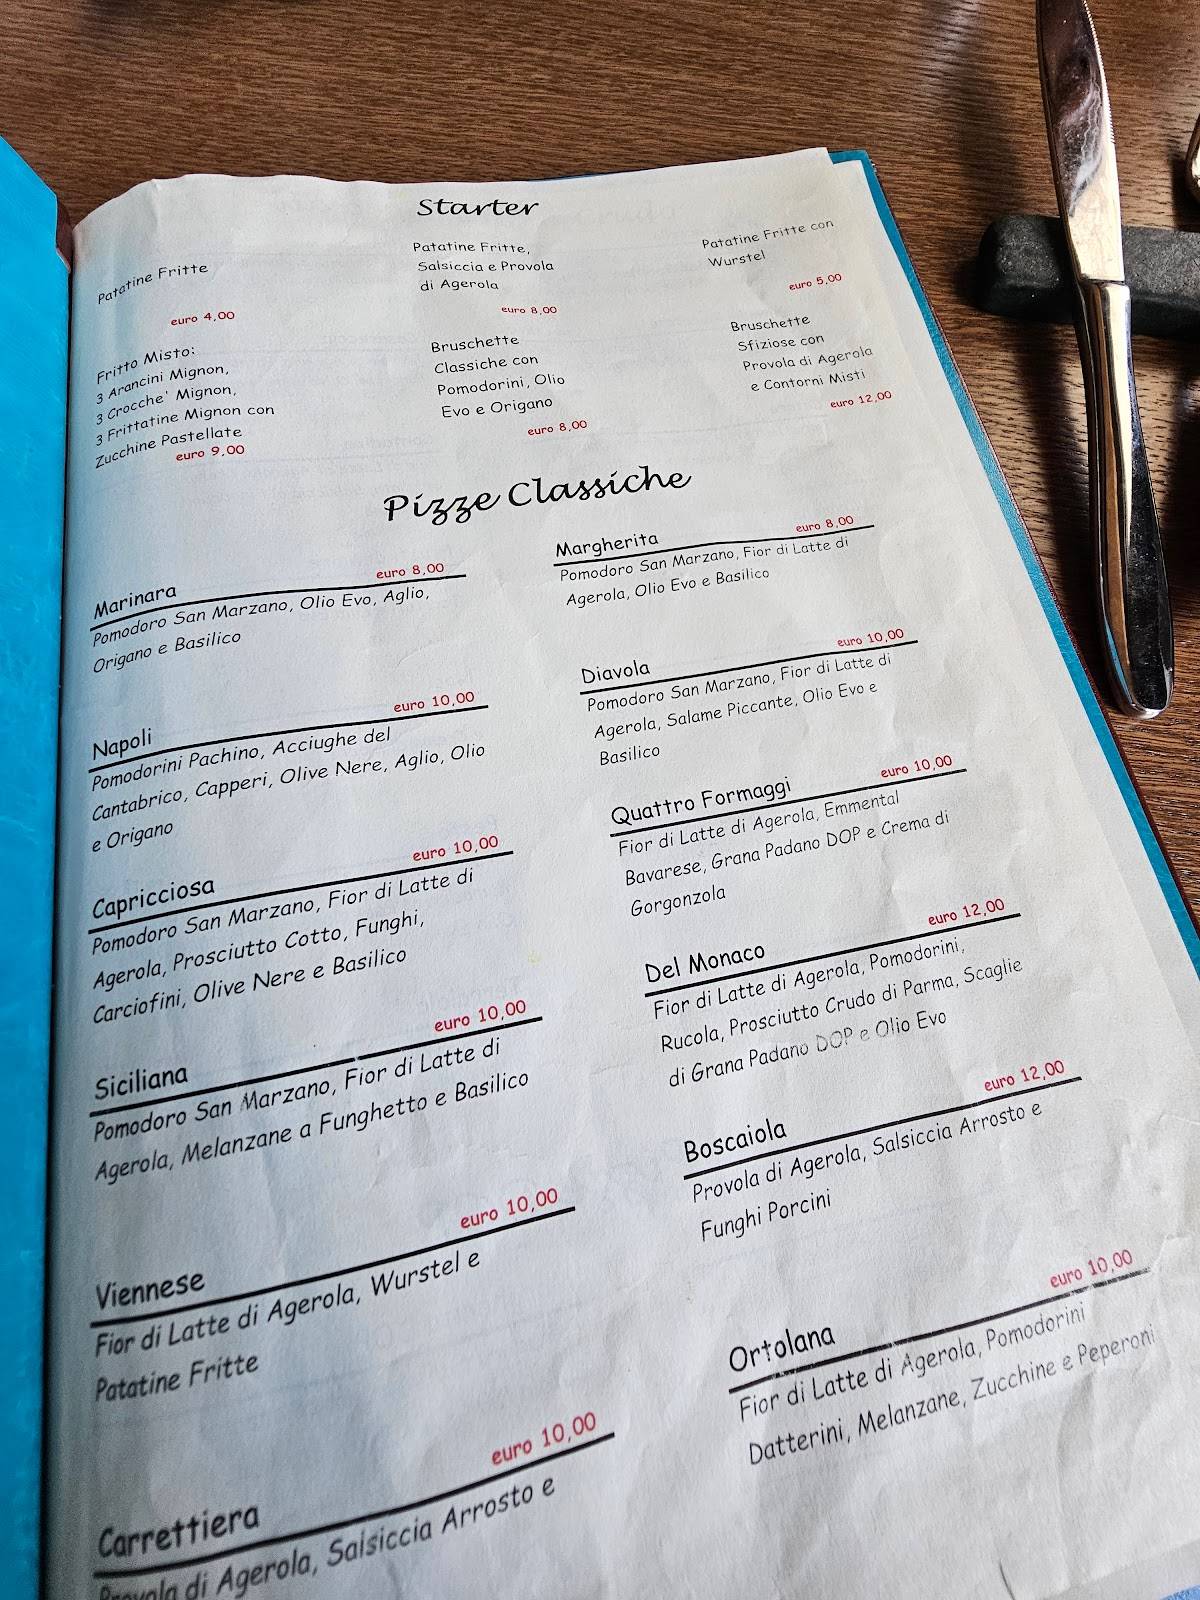 Starter
Patatine Fritte
euro 4,00
Patatine Fritte,
Salsiccia e Provola
di Agerola
euro 8,00
Patatine Fritte con
Wurstel
euro 5,00
Fritto Misto:
3 Arancini Mignon,
3 Crocche' Mignon,
3 Frittatine Mignon con
Zucchine Pastellate
euro 9,00
Bruschette
Classiche con
Pomodorini, Olio
Evo e Origano
euro 8,00
Bruschette
Sfiziose con
Provola di Agerola
e Contorni Misti
euro 12,00
Pizze Classiche
Marinara
euro 8,00
Pomodoro San Marzano, Olio Evo, Aglio,
Origano e Basilico
Margherita
euro 8,00
Pomodoro San Marzano, Fior di Latte di
Agerola, Olio Evo e Basilico
Napoli
euro 10,00
Pomodorini Pachino, Acciughe del
Cantabrico, Capperi, Olive Nere, Aglio, Olio
e Origano
Diavola
euro 10,00
Pomodoro San Marzano, Fior di Latte di
Agerola, Salame Piccante, Olio Evo e
Basilico
Capricciosa
euro 10,00
Pomodoro San Marzano, Fior di Latte di
Agerola, Prosciutto Cotto, Funghi,
Carciofini, Olive Nere e Basilico
Quattro Formaggi
euro 10,00
Fior di Latte di Agerola, Emmental
Bavarese, Grana Padano DOP e Crema di
Gorgonzola
Siciliana
euro 10,00
Pomodoro San Marzano, Fior di Latte di
Agerola, Melanzane a Funghetto e Basilico
Del Monaco
euro 12,00
Fior di Latte di Agerola, Pomodorini,
Rucola, Prosciutto Crudo di Parma, Scaglie
di Grana Padano DOP e Olio Evo
Viennese
euro 10,00
Fior di Latte di Agerola, Wurstel e
Patatine Fritte
Boscaiola
euro 12,00
Provola di Agerola, Salsiccia Arrosto e
Funghi Porcini
Carrettiera
euro 10,00
Provola di Agerola, Salsiccia Arrosto e
Ortolana
euro 10,00
Fior di Latte di Agerola, Pomodorini
Datterini, Melanzane, Zucchine e Peperoni